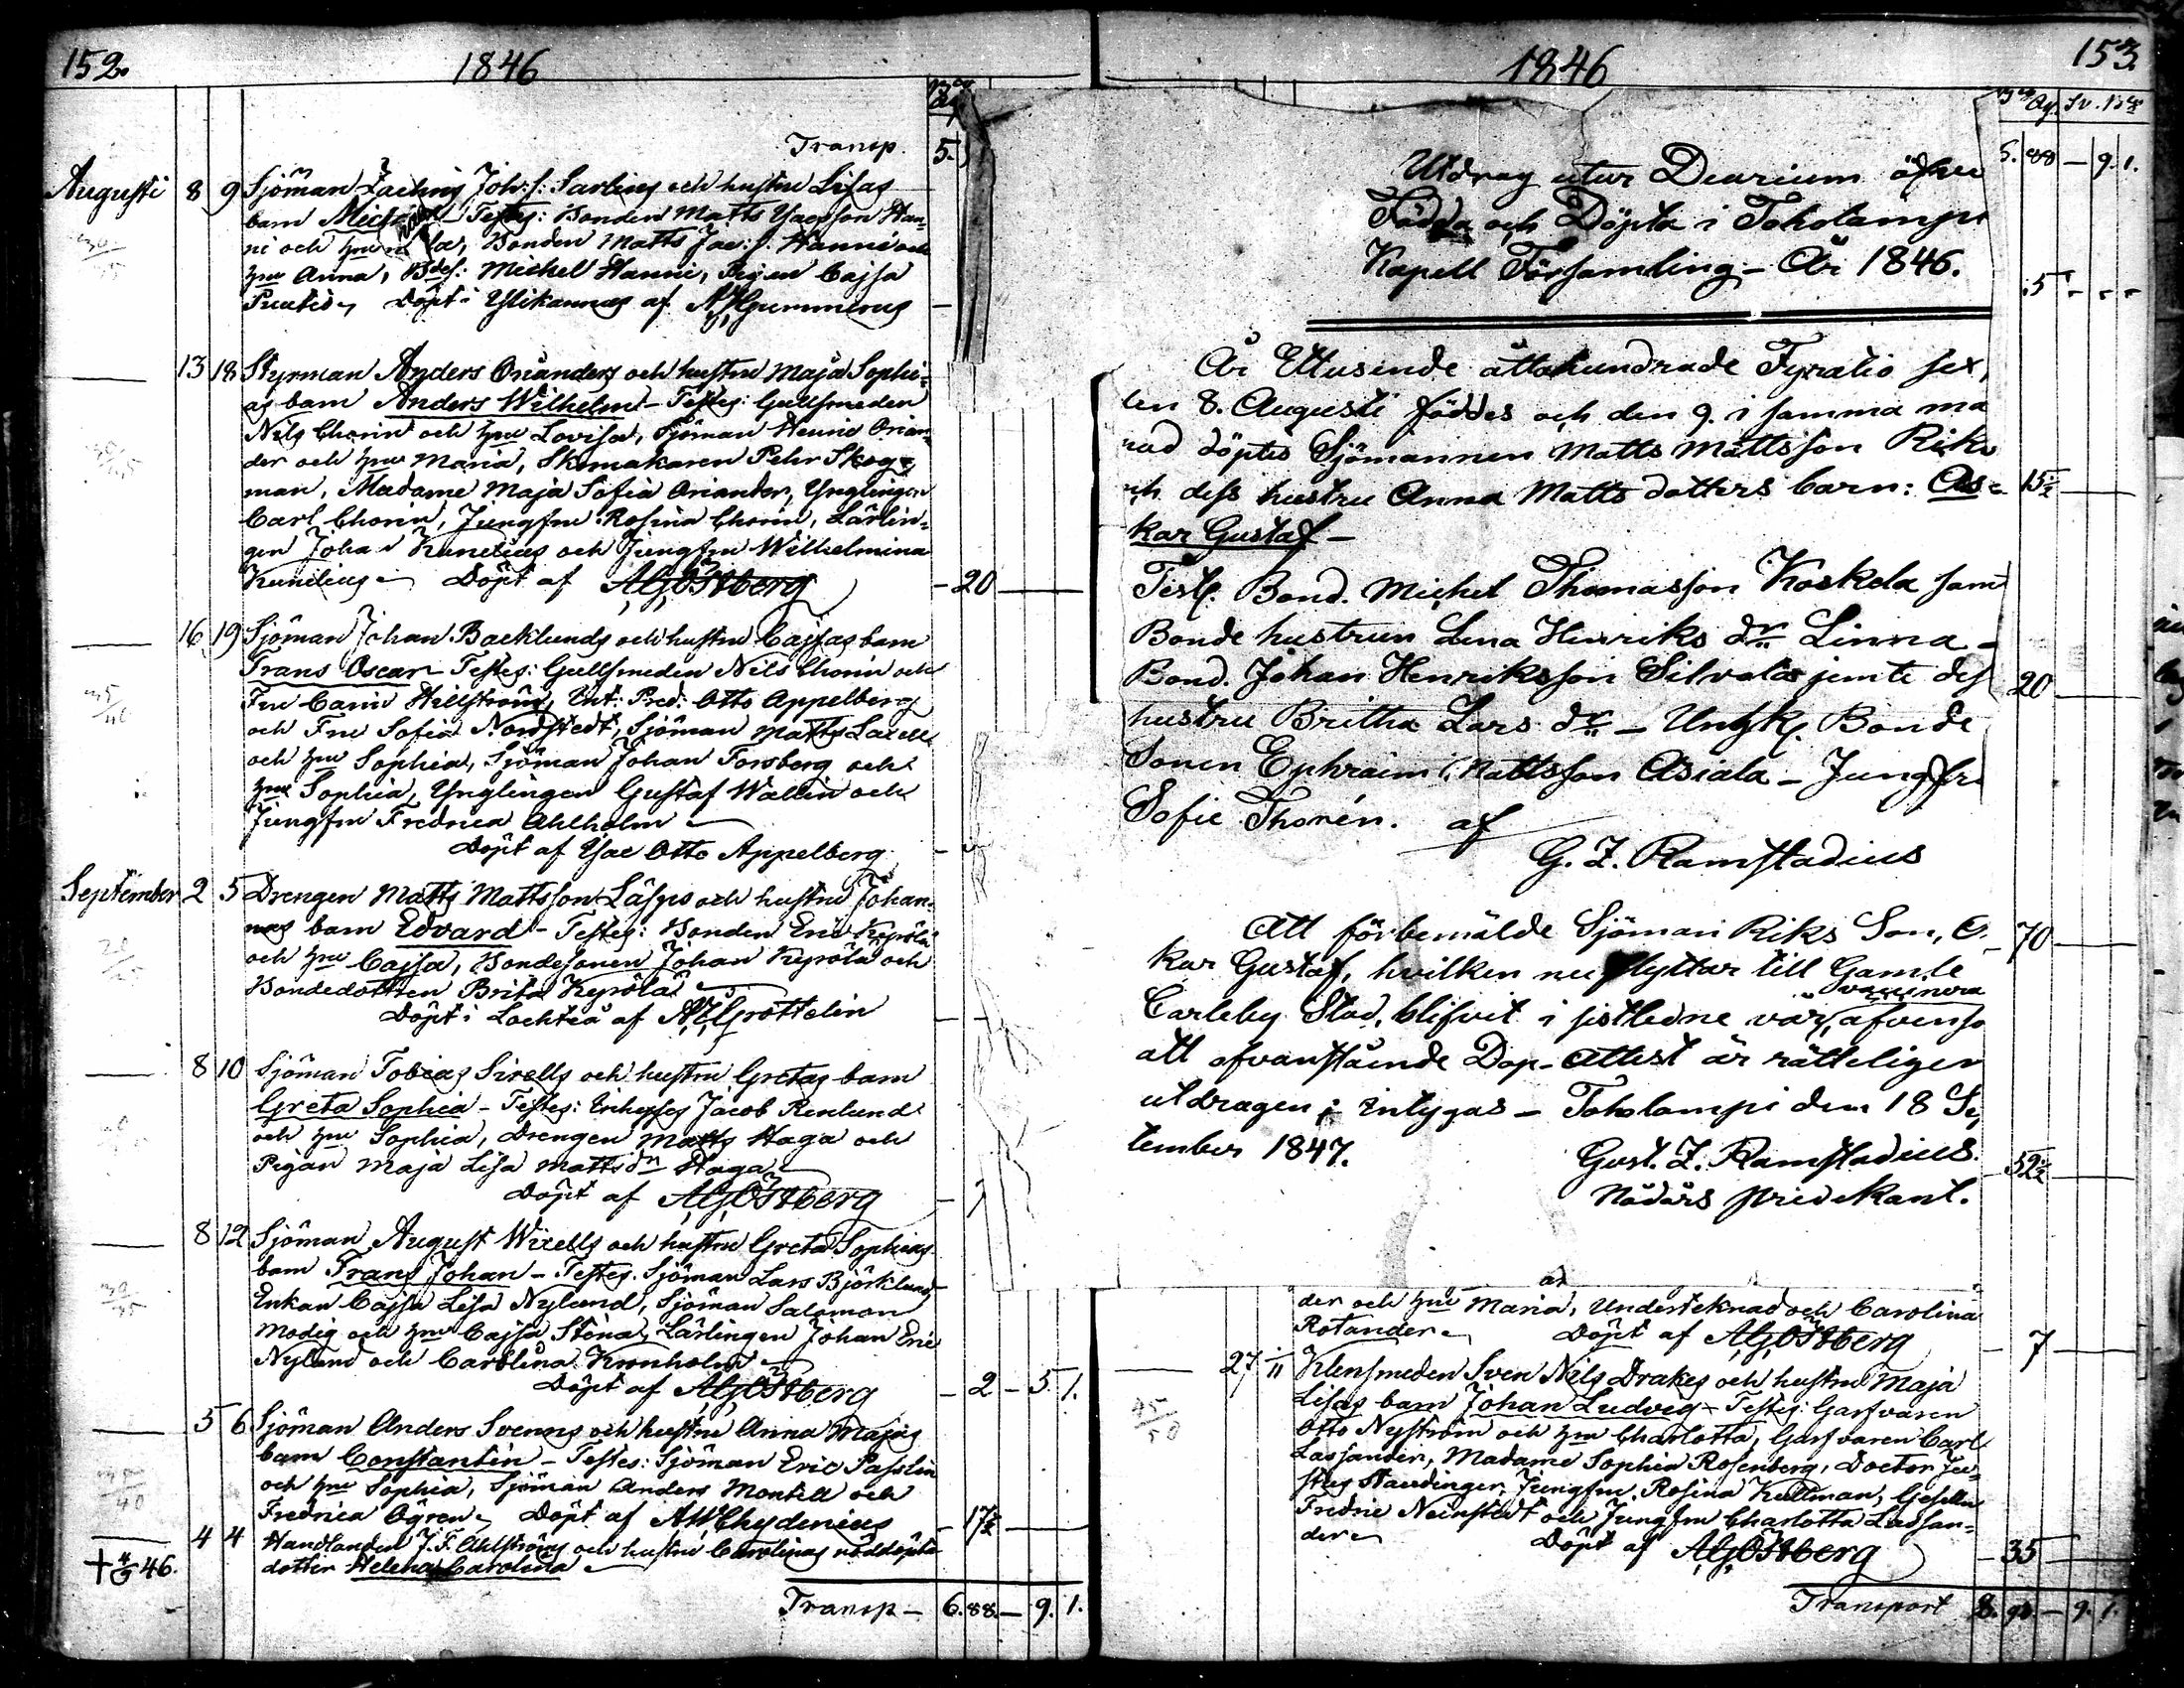 152.
1846
Transp. 5.
Augusti 8 9 Sjöman Joh:s: Sarlins och hustru Lisas
barn Testes: Bonden Matts Jacsson Han=
ni och Bonden Matts Jac: s. Hanni och
hru Anna, Michel Hanni, Pigan Cajsa
Döpt i Ylikannus af Gummerus
13 18 Styrman Anders Orianders och hustru Maja Sophi=
as barn Anders Wilhelm - Testes: Gullsmeden
Nils Chorin och hru Lovisa, Sjöman Henric Orian=
der och hru Maria, Skomakaren Pehr Skog=
man, Madame Maja Sofia Oriander, Ynglingen
Carl Chorin, Jungfru Rosina Chorin, Lärlin=
gen Johan Kunelius och Jungfru Wilhelmina
Kunelius. Döpt af AGÖstberg - 20
16 19 Sjöman Johan Backlunds och hustru Cajsas barn
Frans Oscar - Testes: Gullsmeden Nils Chorin och
Fru Carin Hellström, Pred: Otto Appelberg
och Fru Sofia Nordstedt, Sjöman Matts Laxell
och hru Sophia, Sjöman Johan Forsberg och
hru Sophia, Ynglingen Gustaf Wallin och
Jungfru Fredrica Ahlholm
Döpt af Isac Otto Appelberg
September 2 5 Drengen Matts Mattsson och hustru Johan=
nas barn Edvard - Testes: Bonden Eric
och hru Cajsa, Bondesonen Johan och
Bondedottren Brita
Döpt i Lochteå af
8 10 Sjöman Tobias Sirells och hustru Gretas barn
Greta Sophia - Testes: Jacob Renlund
och hru Sophia, Drengen Matts Haga och
Pigan Maja Lisa Mattsdr Haga
Döpt af AGÖstberg - 7
8 12 Sjöman August Wixells och hustru Greta Sophias
barn Frans Johan - Testes. Sjöman Lars Björklund,
Enkan Cajsa Lisa Nylund, Sjöman Salomon
Modig och hru Cajsa Stina, Lärlingen Johan Eric
Nylund och Carolina Kronholm
Döpt af AGÖstberg - 2 - 5. 1.
5 6 Sjöman Anders Svenns och hustru Anna Majas
barn Constantin - Testes: Sjöman Eric
och hru Sophia, Sjöman Anders Montell och
Fredrica Ögren. Döpt af AWChydenius - 17½
4 4 Handlanden J. F. Ahlströms och hustru Carolinas nöddöpta
46. dotter Helena Carolina
Transp - 6.88. - 9. 1.
1846
153.
6. 88 - 9. 1.
Utdrag utur Diarium öfver
Födda och Döpta i Toholampi
Kapell Församling - År 1846.
År Ettusinde åttahundrade Fyratio sex,
den 8. Augusti föddes och den 9. i samma må
nad döptes Sjömannen Matts Mattsson Riks
och dess hustru Anna Matts dotters barn: Os=
kar Gustaf -
Test. Bond. Michel Thomasson Koskela samt
Bonde hustrun Lena Henriks dr Linna -
Bond. Johan Henriksson Silvola jemte dess
hustru Britha Lars dr - Ungk. Bonde
Sonen Ephraim Mattsson Asiala - Jungfru
Sofie Thorén. af
G. Z. Ramstadius
Att förbemälde Sjöman Riks Son, O.
kar Gustaf, hvilken nu flyttar till Gamle
vaccinera
Carleby Stad, blifvit i sistledne vår, äfvenso
att ofvanstående Dop-Attest är rätteligen
utdragen; intygas - Toholampi den 18 Sep
tember 1847.
Gust. Z. Ramstadius.
Nådårs predikant.
15½
20
70
52½
der och hru Maria, Undertecknad och Carolina
Rotander. Döpt af AGÖstberg - 7
27 Klensmeden Sven Nils Drakes och hustru Maja
Lisas barn Johan Ludvig - Testes: Garfvaren
Otto Nyström och hru Charlotta, Garfvaren Carl
Lassander, Madame Sophia Rosenberg, Doctor Ju=
stus Staudinger, Jungfru Rosina Kullman, Gesellen
Fredric Neinstedt och Jungfru Charlotta Lassan=
der. Döpt af AGÖstberg - 35
Transport 8. 90. - 9. 1.